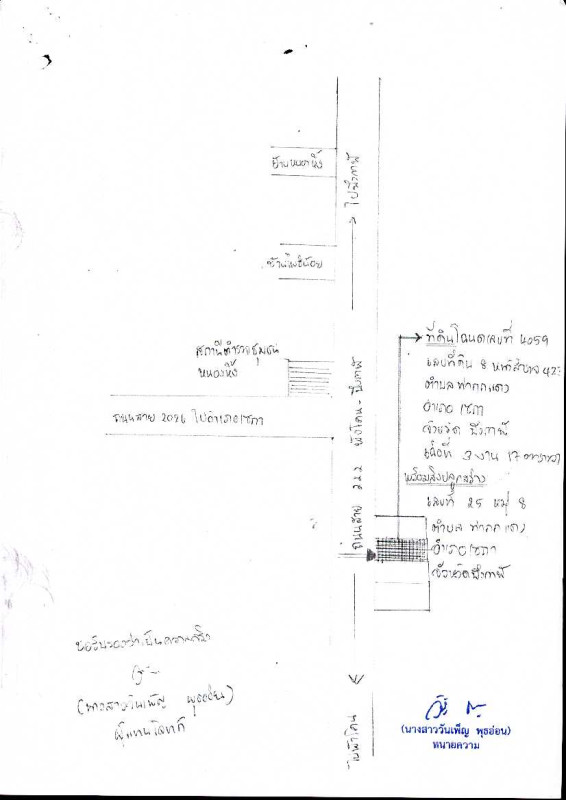 บ้านหนองหิ้ง
ไปบึงกาฬ
บ้านโนธิน้อย
สถานีตำรวจชุมชน
หนองหิ้ง
ถนนสาย 2026 ไปอำเภอเซกา
ถนนสาย 222 พังโคน - บึงกาฬ
ที่ดินโฉนดเลขที่ 4059
เลขที่ดิน 8 หน้าสำรวจ
ตำบล ท่ากกแดง
อำเภอ เซกา
จังหวัด บึงกาฬ
เนื้อที่ 3 งาน 17 ตารางวา
พร้อมสิ่งปลูกสร้าง
เลขที่ 25 หมู่ 8
ตำบล ท่ากกแดง
อำเภอเซกา
จังหวัดบึงกาฬ
ไปพังโคน
ขอรับรองว่าเป็นความจริง
(นางสาววันเพ็ญ พุธอ่อน)
ผู้แทนโจทก์
(นางสาววันเพ็ญ พุธอ่อน)
ทนายความ